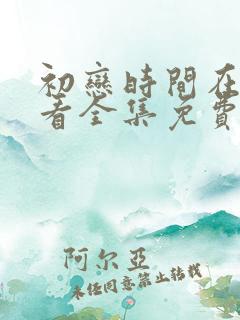 初戀時間在
看全集免費
阿尔亚
未经同意禁止转载